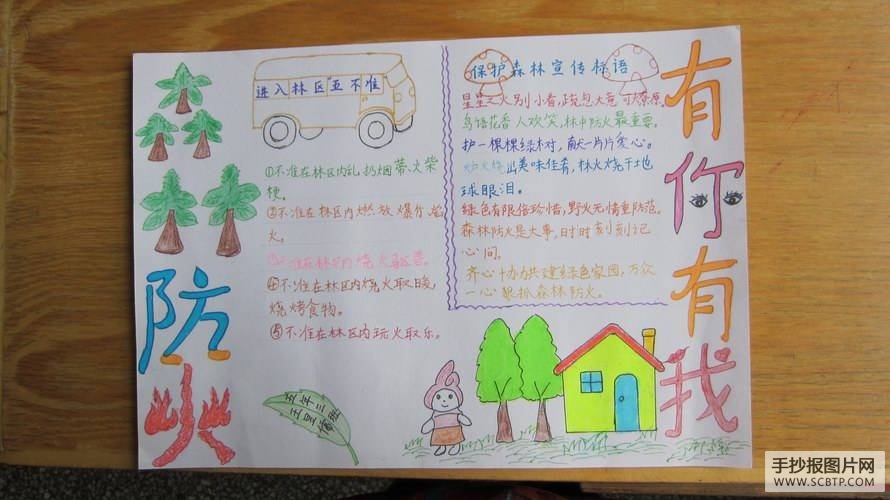 防火
有你有我
进入林区五不准
①不准在林区内乱扔烟蒂、火柴
梗。
②不准在林区内燃放爆竹焰
火。
③不准在林区内烧火
④不准在林区内烧火取暖,
烧烤食物。
⑤不准在林区内玩火取乐。
保护森林宣传标语
星星之火别小看,疏忽大意可燎原
鸟语花香人欢笑,林中防火最重要。
护一棵棵绿树,献一片片爱心。
炉火烧出美味佳肴,林火烧干地
球眼泪。
绿色有限倍珍惜,野火无情重防范。
森林防火是大事,时时刻刻记
心间。
齐心协力共建绿色家园,万众
一心狠抓森林防火。
五年三班
手抄报图片网
WWW.SCBTP.COM